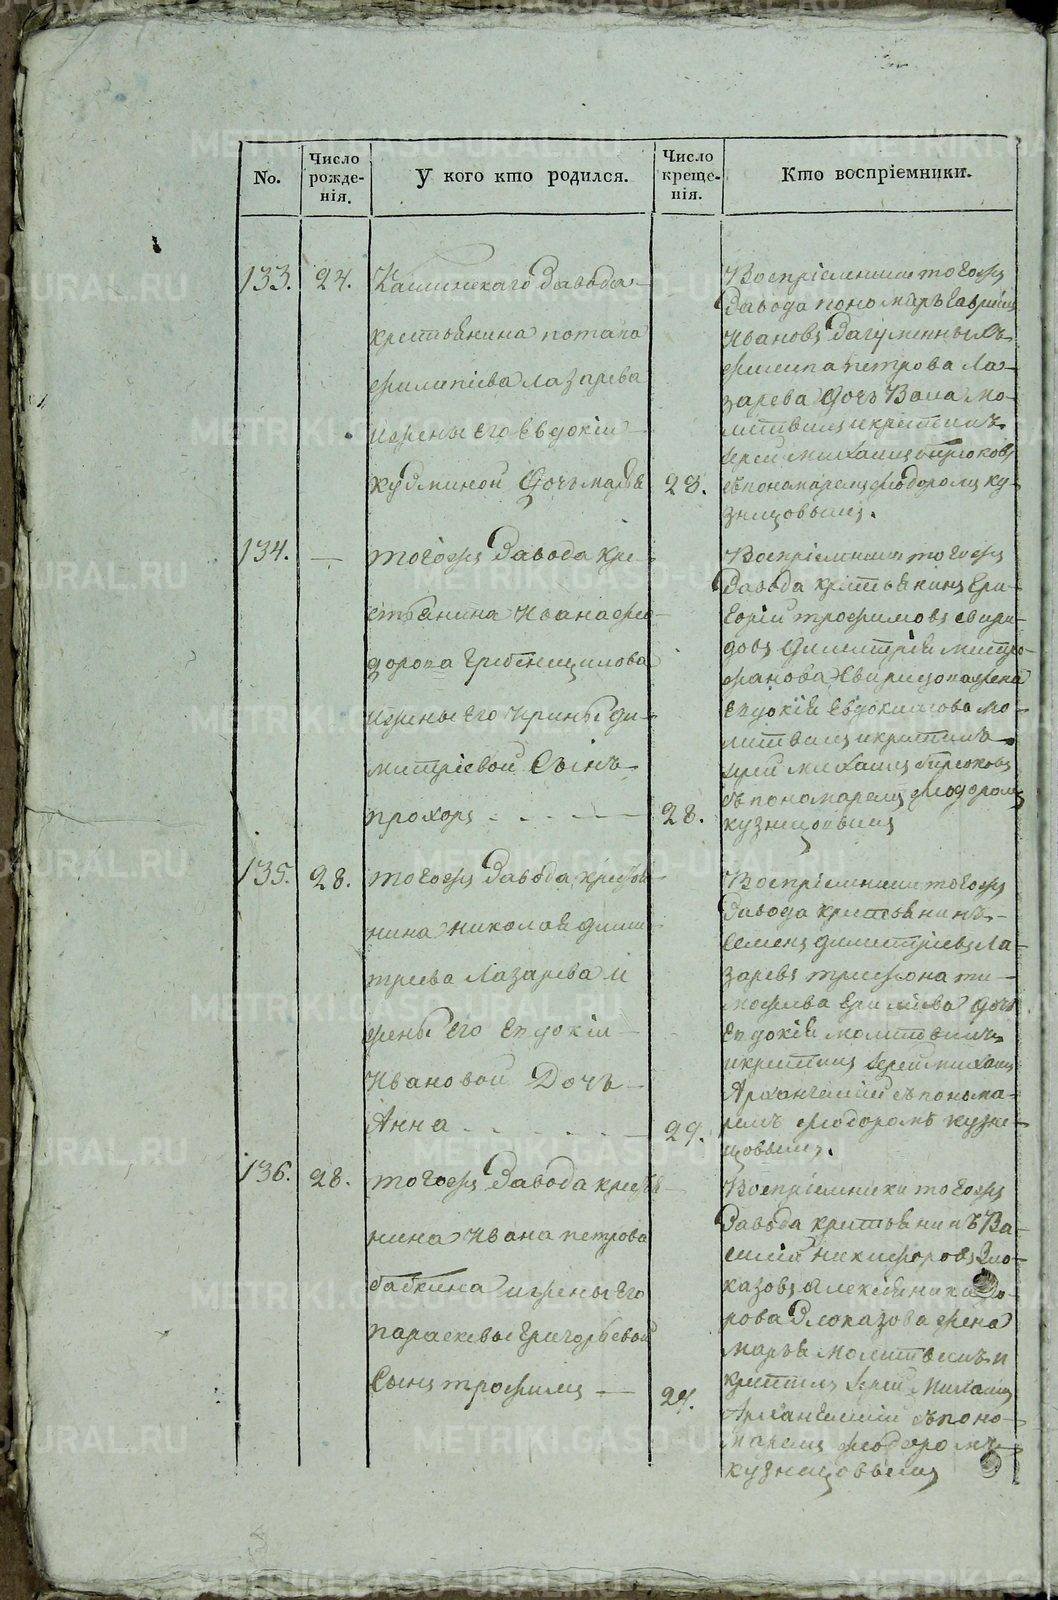 No.
Число рожде-нія.
У кого кто родился.
Число креще-нія.
Кто воспріемники.
133.
24.
Каминскаго завода
крестьянина потапа
филипіева лазарева
ижены его евдокіи
кузминой дочь марья
28.
Воспріемники тогожъ
завода пономарь гаврилъ
Ивановъ
филипа петрова ла-
зарева дочь Васа мо-
литвилъ икрестилъ
іерей михаилъ бирюковъ
съпономаремъ Феодоромъ ку-
знецовымъ.
134.
—
тогожъ завода кре-
стьянина Ивана фео-
дорова гребенщикова
ижены его Ирины ди-
митріевой Сынъ
прохоръ
28.
Воспріемники тогожъ
завода крестьянинъ гри-
горій трофимовъ свири-
довъ димитрія митро-
фанова свиридова жена
евдокія евдокимова мо-
литвилъ икрестилъ
іерей михаилъ бирюковъ
съ пономаремъ Феодоромъ
кузнецовымъ
135.
28.
тогожъ завода крестья-
нина николая дими-
треева лазарева и
жены его евдокіи
Ивановой Дочь
Анна
29.
Воспріемники тогожъ
завода крестьянинъ
семенъ димитріевъ ла-
заревъ трифона ти-
мофеива дочь
евдокія молитвилъ
икрестилъ іерей михаилъ
Архангелскій съ понома-
ремъ феодоромъ кузне-
цовымъ.
136.
28.
тогожъ завода крестья-
нина Ивана петрова
бабкина ижены его
параскевы григорьевой
Сынъ трофимъ
29.
Воспріемники тогожъ
завода крестьянинъ Ва-
силій никифоровъ Зло-
казовъ алексія никифо-
рова Злоказова жена
марья молитвилъ и
крестилъ іерей Михаилъ
Архангелскій съ поно-
маремъ феодоромъ
кузнецовымъ
METRIKI.GASO-URAL.RU